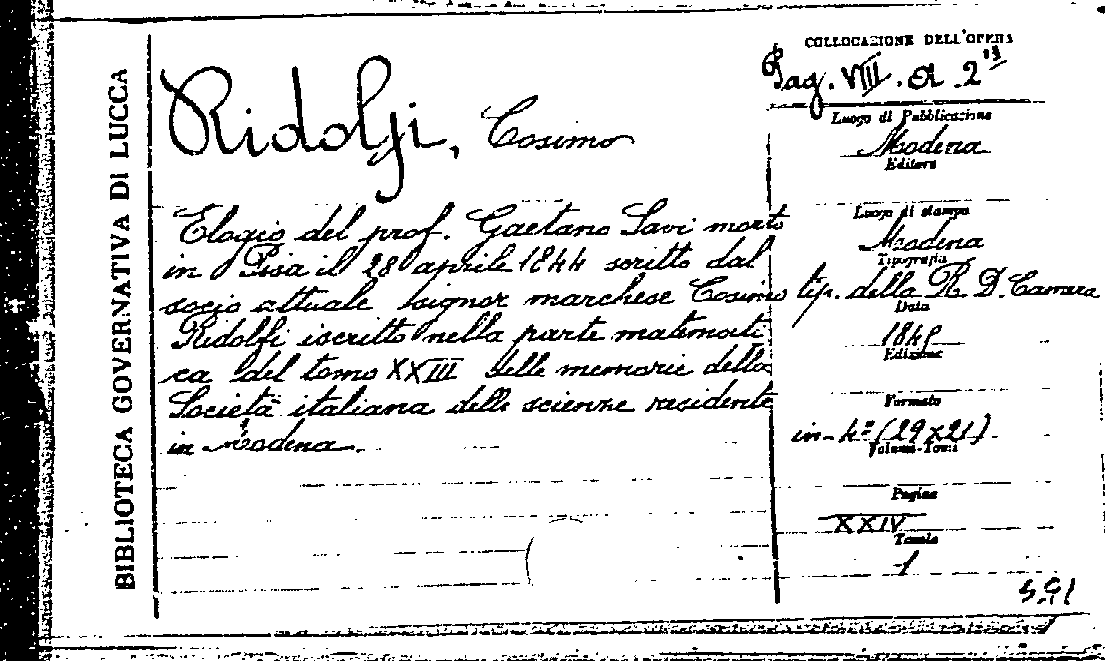 BIBLIOTECA GOVERNATIVA DI LUCCA
Ridolfi, Cosimo
Elogio del prof. Gaetano Savi morto
in Pisa il 28 aprile 1844 scritto dal
socio attuale signor marchese Cosimo
Ridolfi iscritto nella parte matemati-
ca del tomo XXIII delle memorie della
Società italiana delle scienze residente
in Modena.
COLLOCAZIONE DELL'OPERA
Pag. VIII. A 2
Luogo di Pubblicazione
Modena
Editore
Luogo di stampa
Modena
Tipografia
tip. della R. D. Camera
Data
1845
Edizione
Formato
in-4° (29x21)
Volumi-Tomi
Pagine
XXIV
Tavole
1